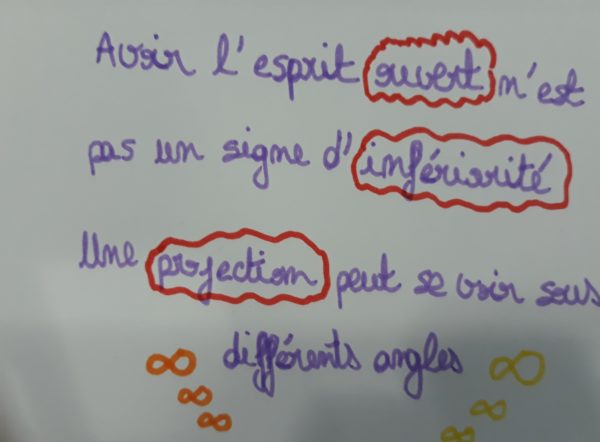 Avoir l'esprit ouvert n'est
pas un signe d'infériorité
Une projection peut se voir sous
différents angles